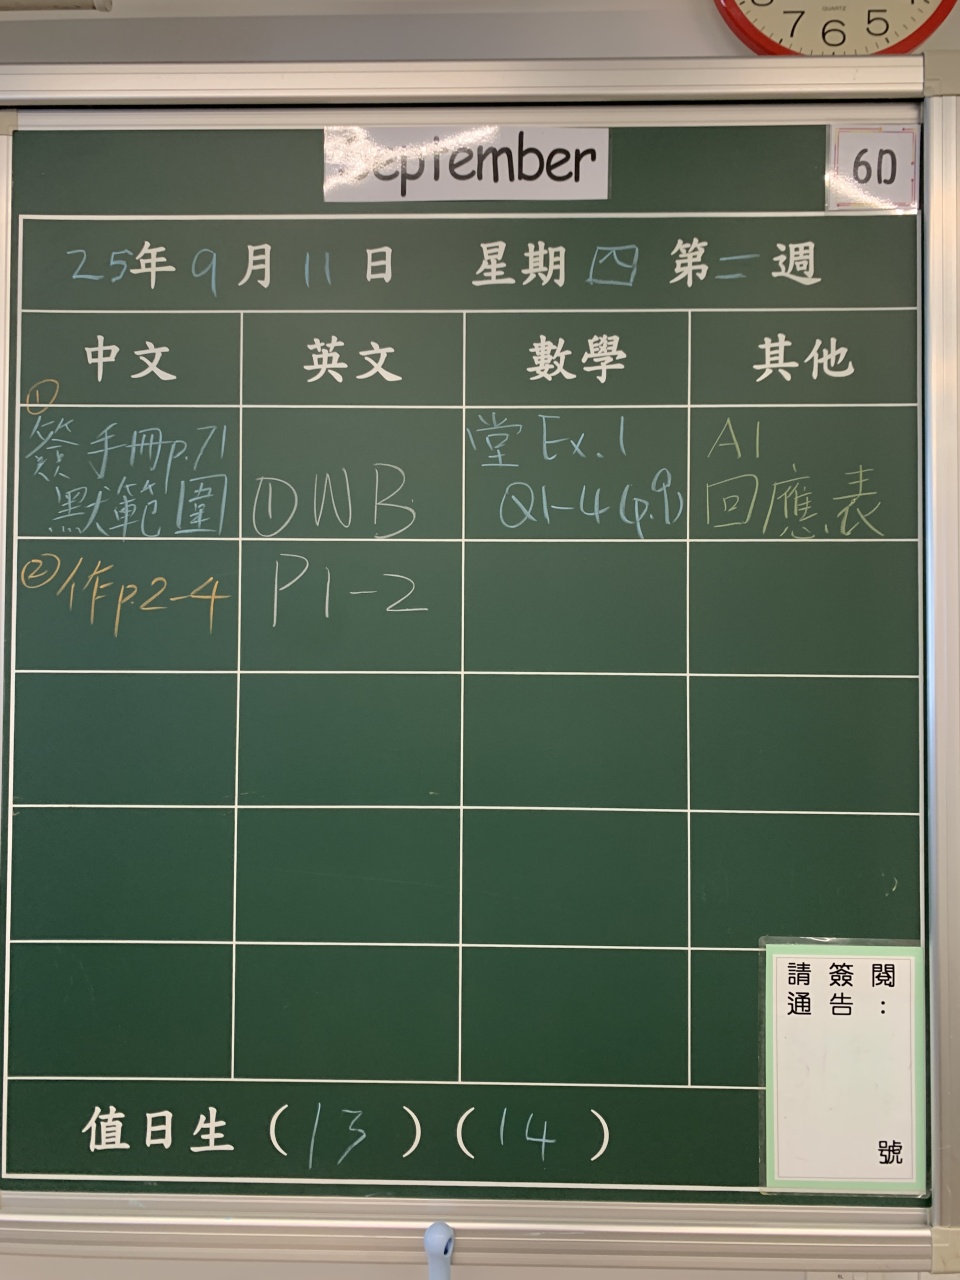 7 6 5
QUARTZ
September
6D
25年9月11日 星期四 第二週
中文 英文 數學 其他
①
簽手冊p.71
默範圍
②作p.2-4
①WB
P1-2
堂 Ex.1
Q1-4(p.9)
AI
回應表
請簽閱
通告:
號
值日生(13)(14)